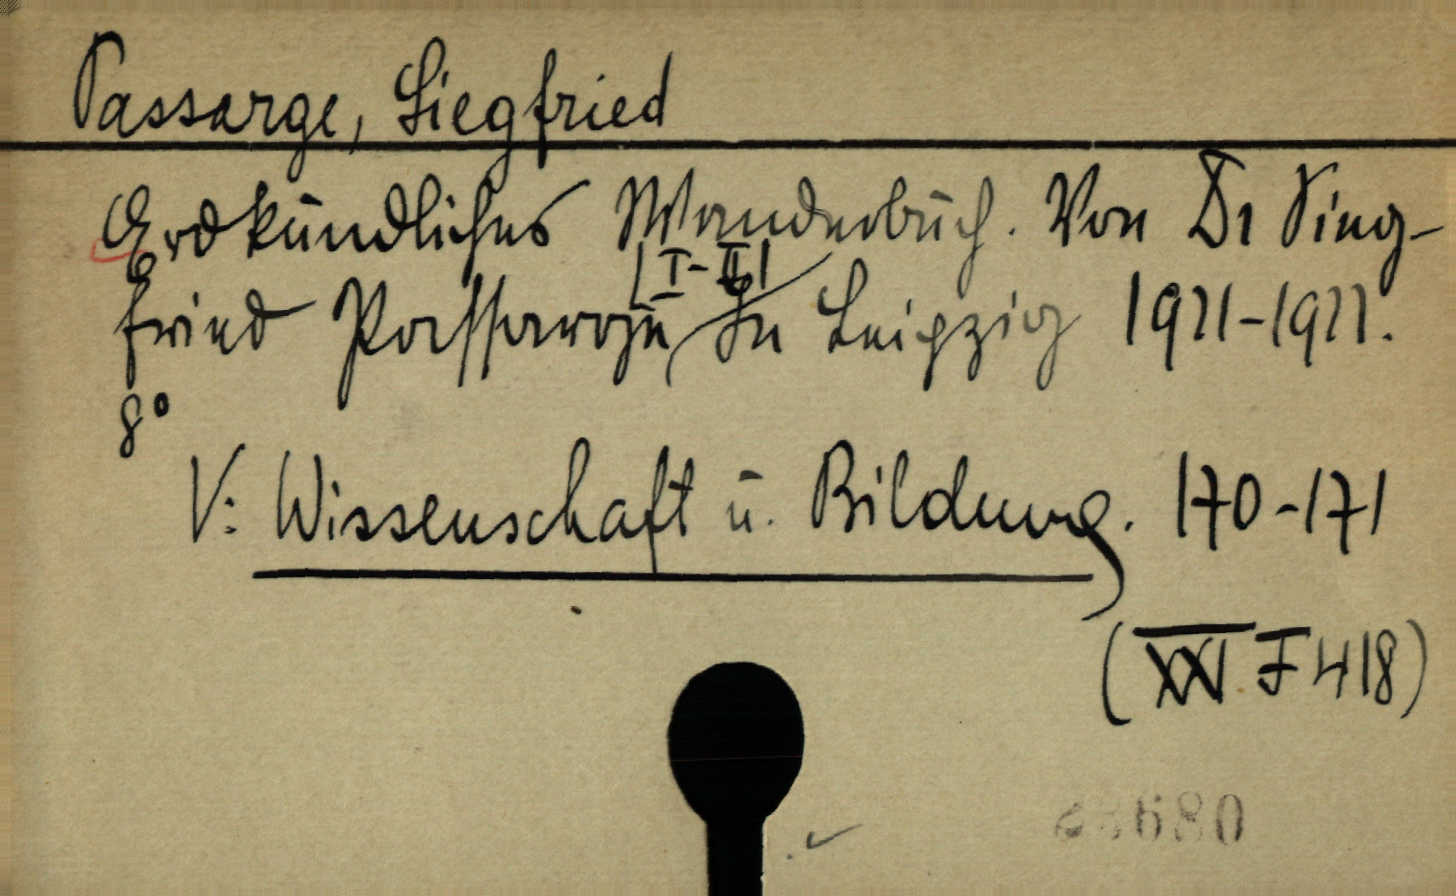 Passarge, Siegfried
Erdkundliches Wanderbuch. Von Dr Sieg-
[I-II]
fried Passarge, In Leipzig 1921-1922.
8°
V: Wissenschaft u. Bildung. 170-171
(XXI F 418)
680